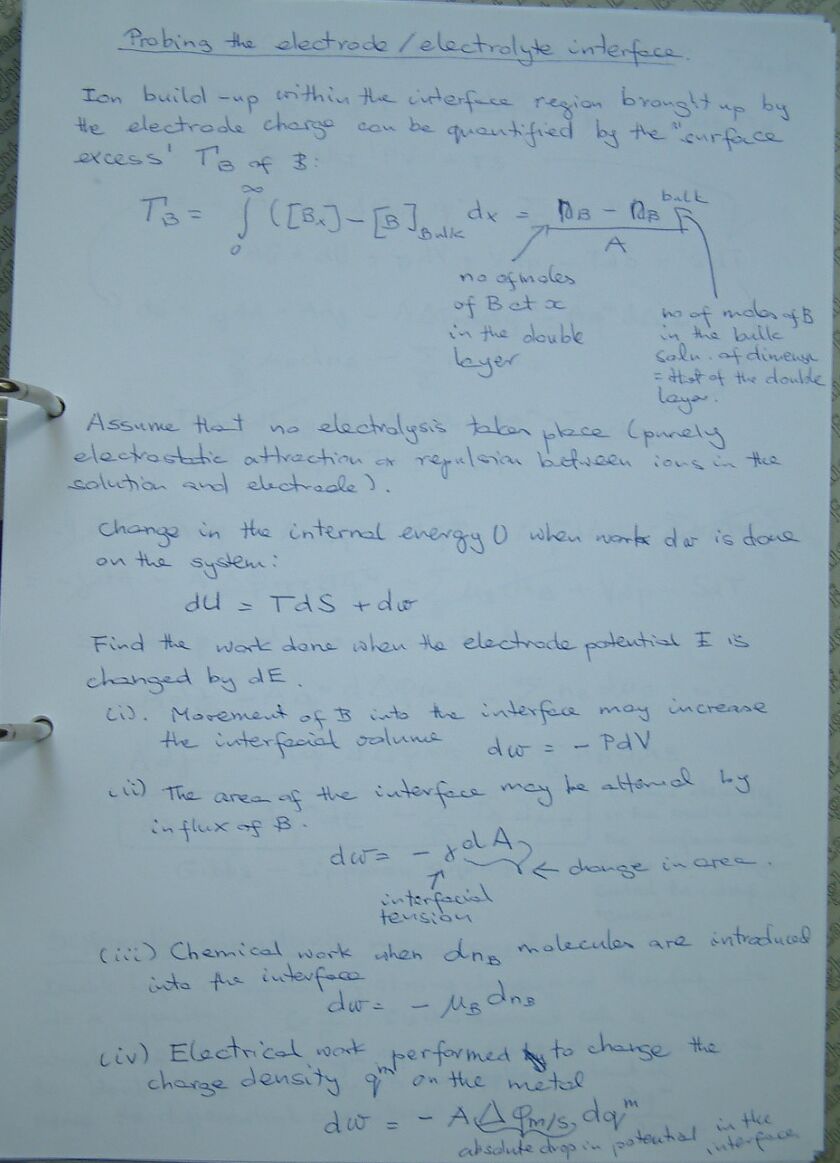 Probing the electrode / electrolyte interface.
Ion build-up within the interface region brought up by
the electrode charge can be quantified by the "surface
excess' Γ_B of B:
Γ_B = ∫_0^∞ ([B_x] - [B]_Bulk dx = (n_B - n_B^bulk) / A
no of moles
of B at x
in the double
layer
no of moles of B
in the bulk
soln. of dimens
= that of the double
layer.
Assume that no electrolysis takes place (purely
electrostatic attraction or repulsion between ions in the
solution and electrode).
Change in the internal energy U when work dw is done
on the system:
dU = TdS + dw
Find the work done when the electrode potential E is
changed by dE.
(i). Movement of B into the interface may increase
the interfacial volume dw = - PdV
(ii) The area of the interface may be altered by
influx of B.
dw = - γ dA
← change in area.
interfacial
tension
(iii) Chemical work when dn_B molecules are introduced
into the interface
dw = - μ_B dn_B
(iv) Electrical work performed to change the
charge density q^m on the metal
dw = - A Δφ_m/s dq^m
absolute drop in potential in the
interface